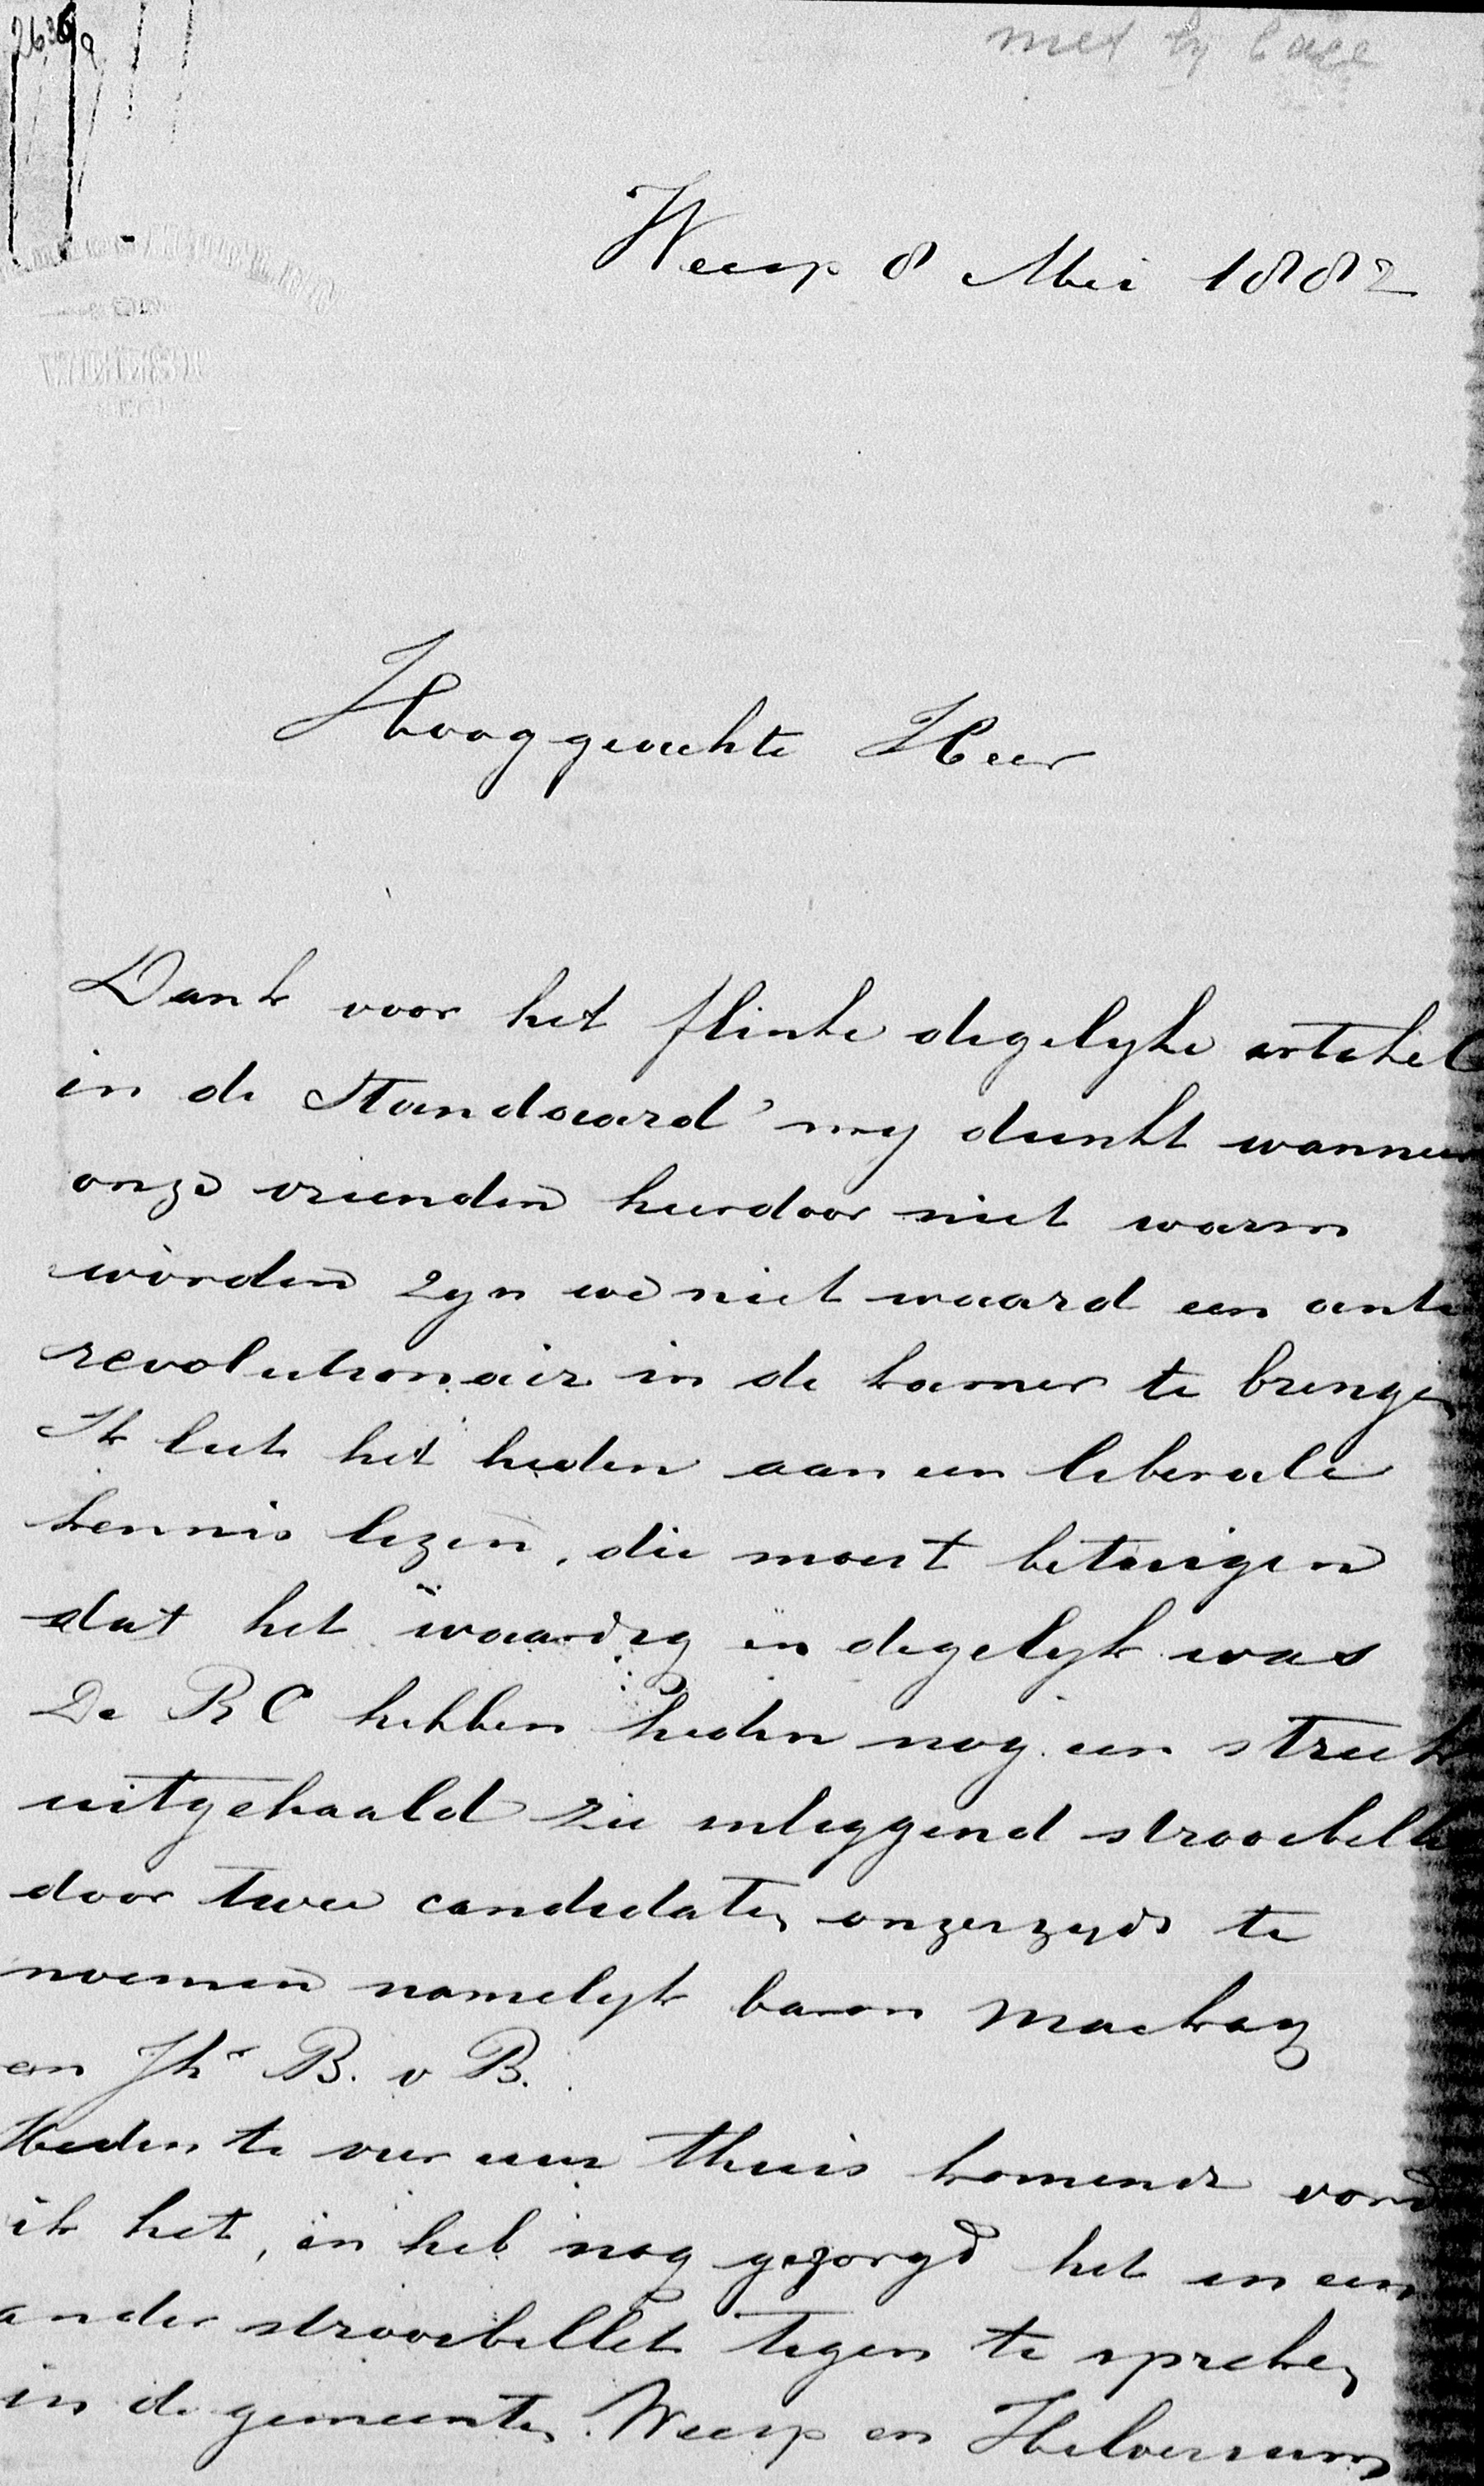 2636a
met bylage
Weesp 8 Mei 1882
Hooggeachte Heer
Dank voor het flinke degelyke artekel
in de Standaard my dunkt wanneer
onze vrienden hierdoor niet warm
worden zyn we niet waard een anti
revolutionair in de kamer te brengen
Ik liet het heden aan een liberale
kennis lezen, die moest betuigen
dat het waardig en degelyk was
De RC hebben heden nog een streek
uitgehaald zie inleggend strooibellet
door twee candidaten onzerzyds te
noemen namelyk baron Mackay
en Jhr B. v B.
Heden te vier uur thuis komende vond
ik het, en heb nog gezorgd het in een
ander strooibellet tegen te spreken
in de gemeenten Weesp en Hilversum